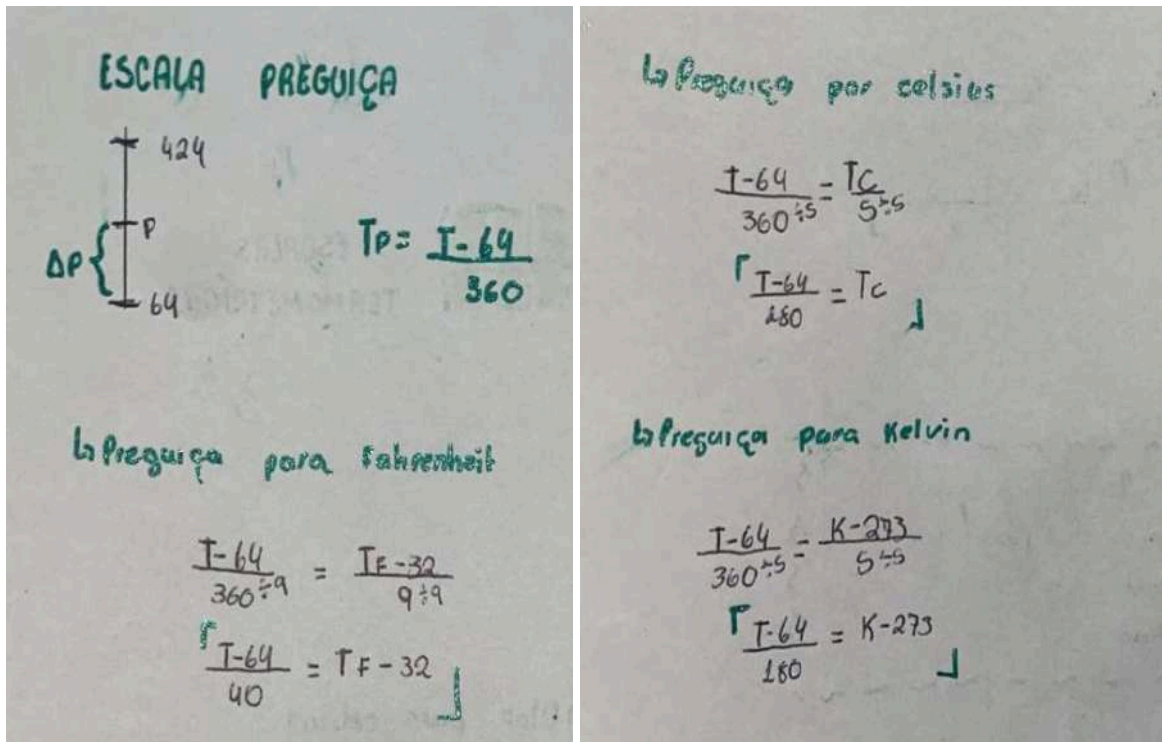 ESCALA PREGUIÇA
424
P
ΔP {
64
TP = T-64 / 360
↳ Preguiça para Fahrenheit
T-64 / 360 ÷9 = TF-32 / 9 ÷9
T-64 / 40 = TF-32
↳ Preguiça por celsius
T-64 / 360 ÷5 = TC / 5 ÷5
T-64 / 180 = Tc
↳ Preguiça para Kelvin
T-64 / 360 ÷5 = K-273 / 5 ÷5
T-64 / 180 = K-273